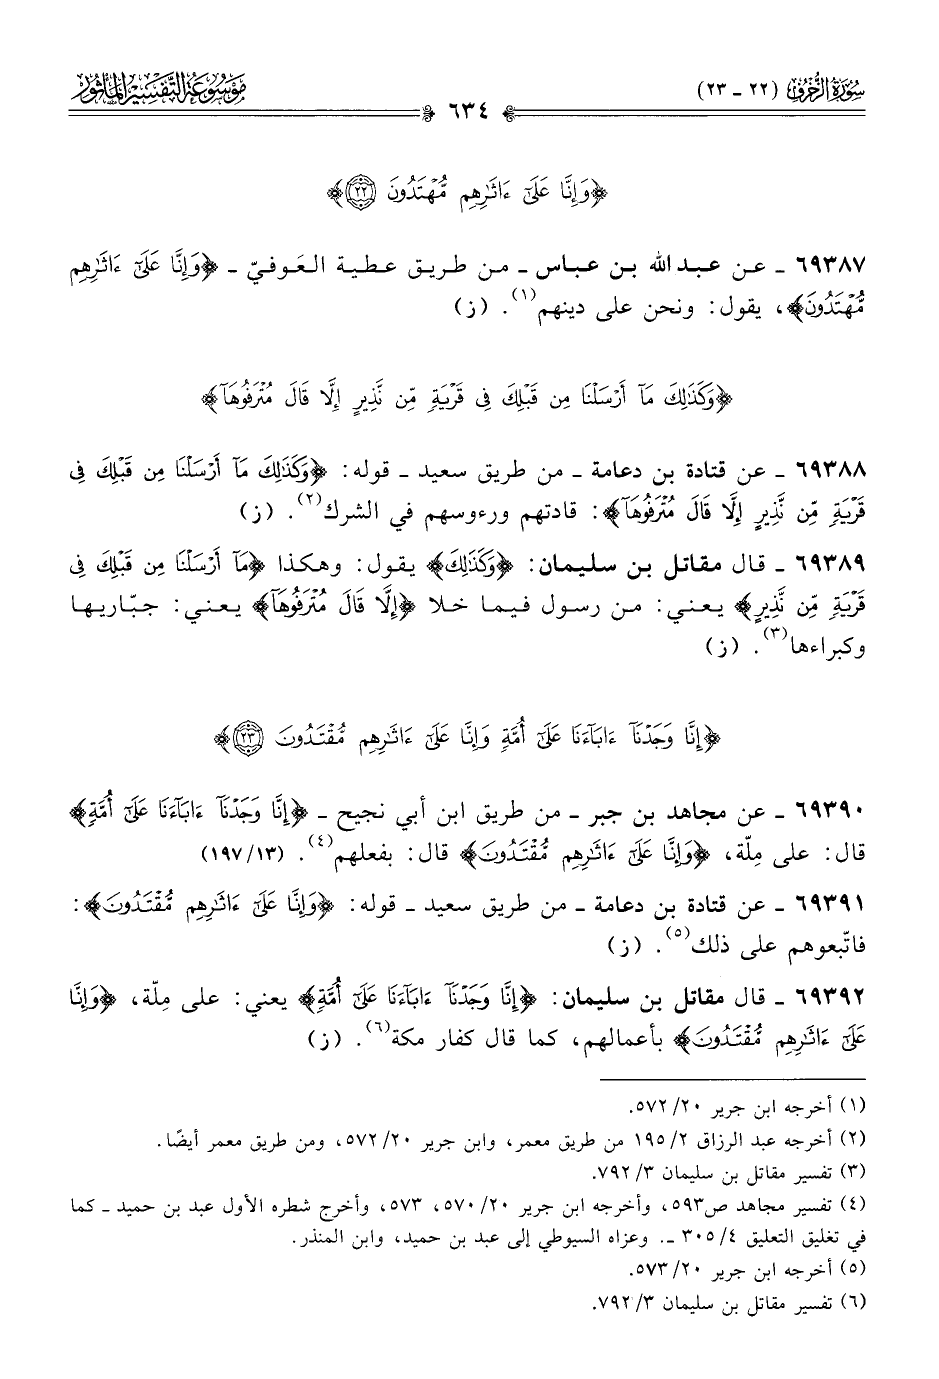 سُورَةُ الزُّخْرُفِ (٢٢ - ٢٣)
٦٣٤
مَوْسُوعَةُ التَّفْسِيرِ المَأْثُورِ
﴿وَإِنَّا عَلَىٰٓ ءَاثَـٰرِهِم مُّهْتَدُونَ ٢٢﴾
٦٩٣٨٧ - عن عبد الله بن عباس - من طريق عطية العَوفيّ - ﴿وَإِنَّا عَلَىٰٓ ءَاثَـٰرِهِم
مُّهْتَدُونَ﴾، يقول: ونحن على دينهم(١). (ز)
﴿وَكَذَٰلِكَ مَآ أَرْسَلْنَا مِن قَبْلِكَ فِى قَرْيَةٍ مِّن نَّذِيرٍ إِلَّا قَالَ مُتْرَفُوهَآ﴾
٦٩٣٨٨ - عن قتادة بن دعامة - من طريق سعيد - قوله: ﴿وَكَذَٰلِكَ مَآ أَرْسَلْنَا مِن قَبْلِكَ فِى
قَرْيَةٍ مِّن نَّذِيرٍ إِلَّا قَالَ مُتْرَفُوهَآ﴾: قادتهم ورءوسهم في الشرك(٢). (ز)
٦٩٣٨٩ - قال مقاتل بن سليمان: ﴿وَكَذَٰلِكَ﴾ يقول: وهكذا ﴿مَآ أَرْسَلْنَا مِن قَبْلِكَ فِى
قَرْيَةٍ مِّن نَّذِيرٍ﴾ يعني: من رسول فيما خلا ﴿إِلَّا قَالَ مُتْرَفُوهَآ﴾ يعني: جبّاريها
وكبراءها(٣). (ز)
﴿إِنَّا وَجَدْنَآ ءَابَآءَنَا عَلَىٰٓ أُمَّةٍ وَإِنَّا عَلَىٰٓ ءَاثَـٰرِهِم مُّقْتَدُونَ ٢٣﴾
٦٩٣٩٠ - عن مجاهد بن جبر - من طريق ابن أبي نجيح - ﴿إِنَّا وَجَدْنَآ ءَابَآءَنَا عَلَىٰٓ أُمَّةٍ﴾
قال: على مِلّة، ﴿وَإِنَّا عَلَىٰٓ ءَاثَـٰرِهِم مُّقْتَدُونَ﴾ قال: بفعلهم(٤). (١٩٧/١٣)
٦٩٣٩١ - عن قتادة بن دعامة - من طريق سعيد - قوله: ﴿وَإِنَّا عَلَىٰٓ ءَاثَـٰرِهِم مُّقْتَدُونَ﴾:
فاتّبعوهم على ذلك(٥). (ز)
٦٩٣٩٢ - قال مقاتل بن سليمان: ﴿إِنَّا وَجَدْنَآ ءَابَآءَنَا عَلَىٰٓ أُمَّةٍ﴾ يعني: على مِلّة، ﴿وَإِنَّا
عَلَىٰٓ ءَاثَـٰرِهِم مُّقْتَدُونَ﴾ بأعمالهم، كما قال كفار مكة(٦). (ز)
(١) أخرجه ابن جرير ٢٠/ ٥٧٢.
(٢) أخرجه عبد الرزاق ٢/ ١٩٥ من طريق معمر، وابن جرير ٢٠/ ٥٧٢، ومن طريق معمر أيضًا.
(٣) تفسير مقاتل بن سليمان ٣/ ٧٩٢.
(٤) تفسير مجاهد ص٥٩٣، وأخرجه ابن جرير ٢٠/ ٥٧٠، ٥٧٣، وأخرج شطره الأول عبد بن حميد - كما
في تغليق التعليق ٤/ ٣٠٥ -. وعزاه السيوطي إلى عبد بن حميد، وابن المنذر.
(٥) أخرجه ابن جرير ٢٠/ ٥٧٣.
(٦) تفسير مقاتل بن سليمان ٣/ ٧٩٢.